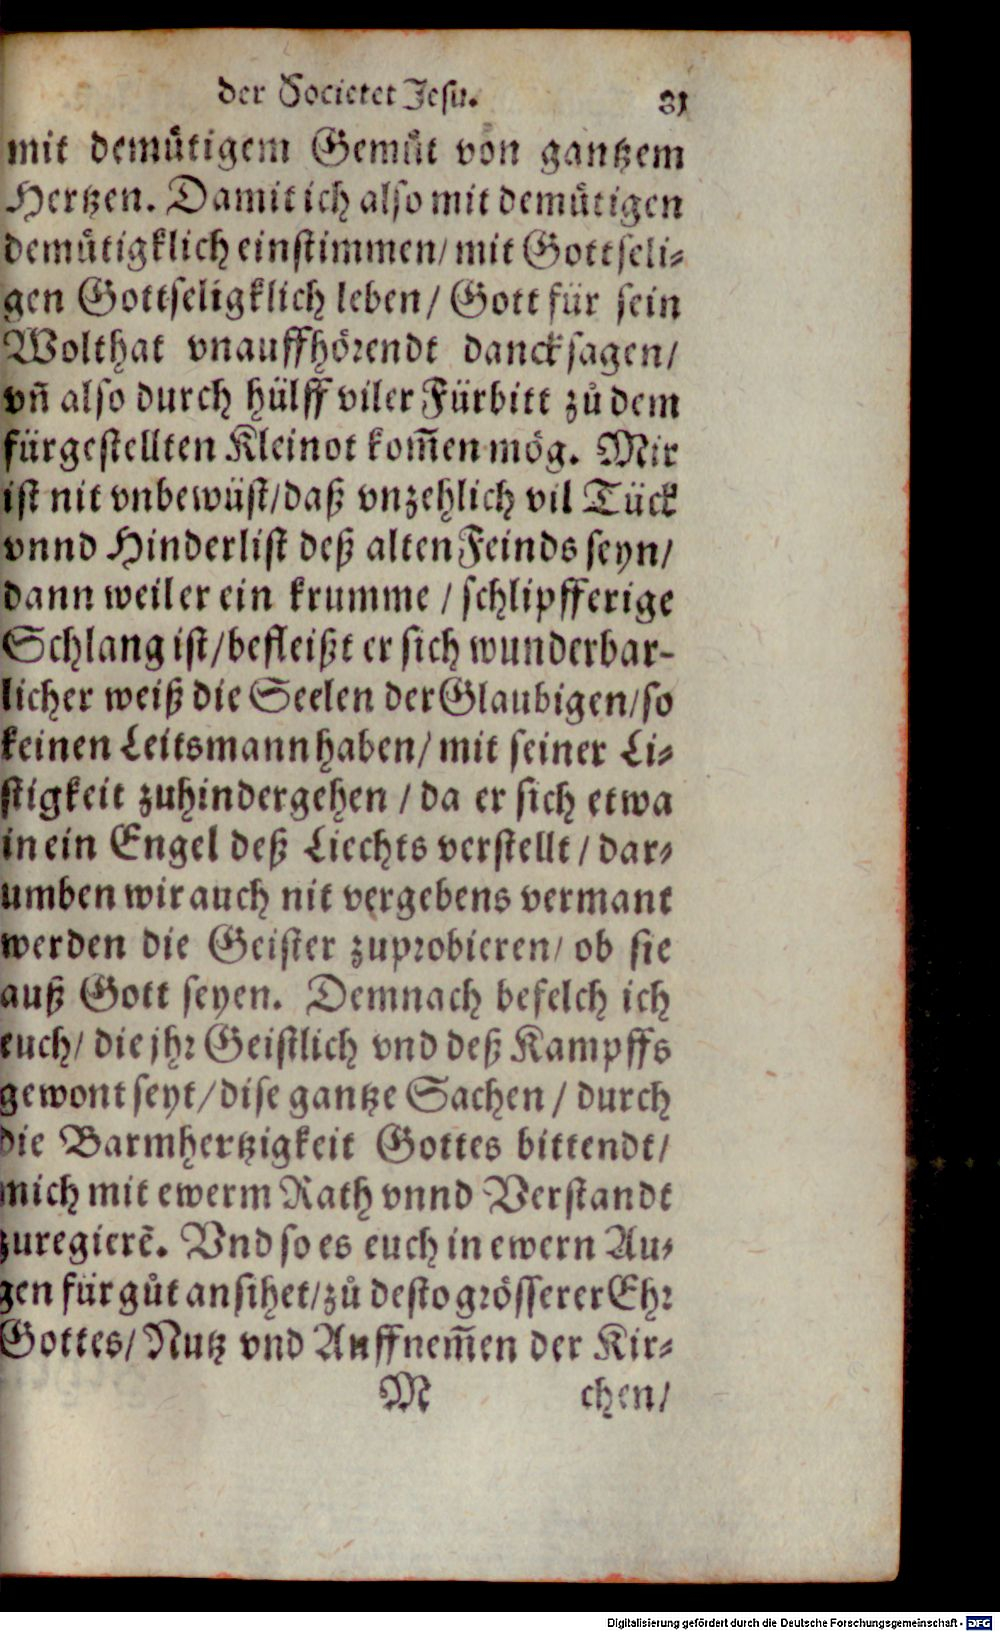 der Societet Jesu. 81
mit demuͤtigem Gemuͤt von gantzem
Hertzen. Damit ich also mit demuͤtigen
demuͤtigklich einstimmen/ mit Gottseli-
gen Gottseligklich leben/ Gott für sein
Wolthat vnauffhoͤrendt dancksagen/
vñ also durch hülff viler Fürbitt zuͦ dem
fürgestellten Kleinot kom̃en moͤg. Mir
ist nit vnbewüst/ daß vnzehlich vil Tück
vnnd Hinderlist deß alten Feinds seyn/
dann weil er ein krumme / schlipfferige
Schlang ist/ befleißt er sich wunderbar-
licher weiß die Seelen der Glaubigen/ so
keinen Leitsmann haben/ mit seiner Li-
stigkeit zuhindergehen / da er sich etwa
in ein Engel deß Liechts verstellt / dar-
umben wir auch nit vergebens vermant
werden die Geister zuprobieren/ ob sie
auß Gott seyen. Demnach befelch ich
euch/ die jhr Geistlich vnd deß Kampffs
gewont seyt/ dise gantze Sachen / durch
die Barmhertzigkeit Gottes bittendt/
mich mit ewerm Rath vnnd Verstandt
zuregierẽ. Vnd so es euch in ewern Au-
gen für guͦt ansihet/ zuͦ desto groͤsserer Ehr
Gottes/ Nutz vnd Auffnem̃en der Kir-
M chen/
Digitalisierung gefördert durch die Deutsche Forschungsgemeinschaft - DFG